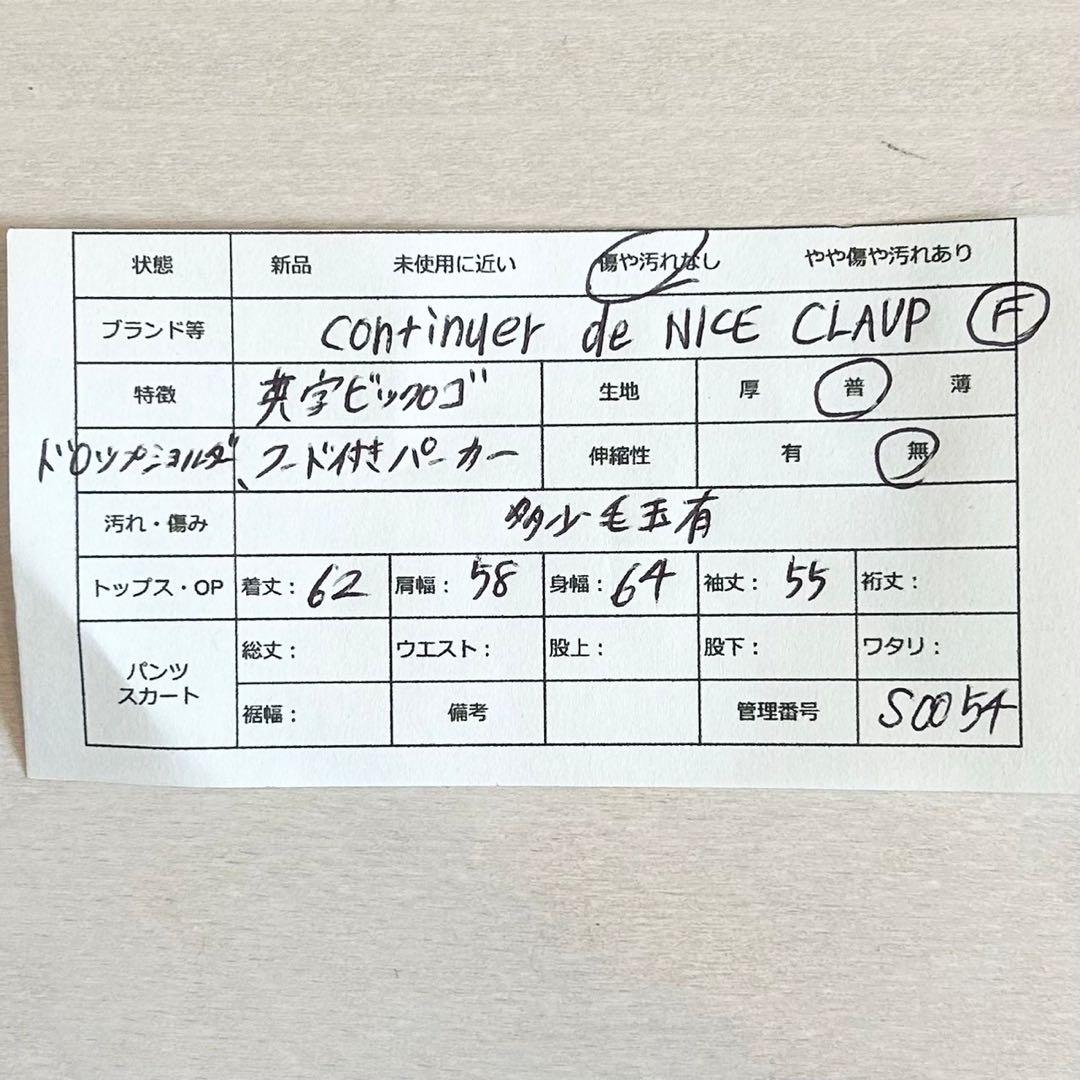 状態 新品 未使用に近い 傷や汚れなし やや傷や汚れあり
ブランド等 continuer de NICE CLAUP F
特徴 英字ビックロゴ 生地 厚 普 薄
ドロップショルダー、フード付きパーカー 伸縮性 有 無
汚れ・傷み 多少毛玉有
トップス・OP 着丈：62 肩幅：58 身幅：64 袖丈：55 裄丈：
パンツ スカート 総丈： ウエスト： 股上： 股下： ワタリ：
裾幅： 備考 管理番号 S0054